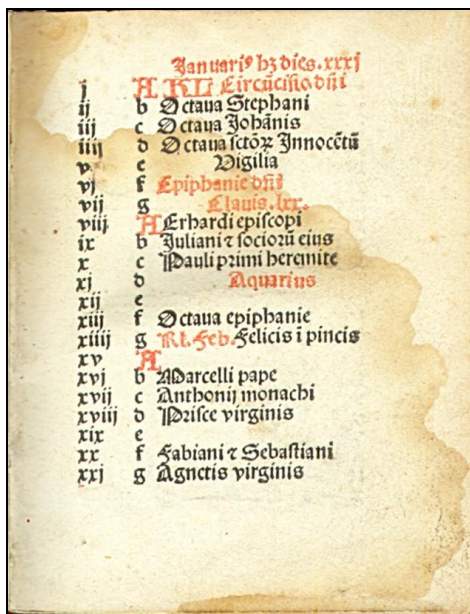 Januariꝰ hꝫ dies .xxxj
j A KL Circūcisio dn̄i
ij b Octaua Stephani
iij c Octaua Johānis
iiij d Octaua sctōꝝ Innocētū
v e Vigilia
vj f Epiphanie dn̄i
vij g Clauis .lxx.
viij A Erhardi episcopi
ix b Juliani ⁊ socioru̅ eius
x c Pauli primi heremite
xj d Aquarius
xij e
xiij f Octaua epiphanie
xiiij g Kl. Feb. Felicis ī pincis
xv A
xvj b Marcelli pape
xvij c Anthonij monachi
xviij d Prisce virginis
xix e
xx f Fabiani ⁊ Sebastiani
xxj g Agnetis virginis